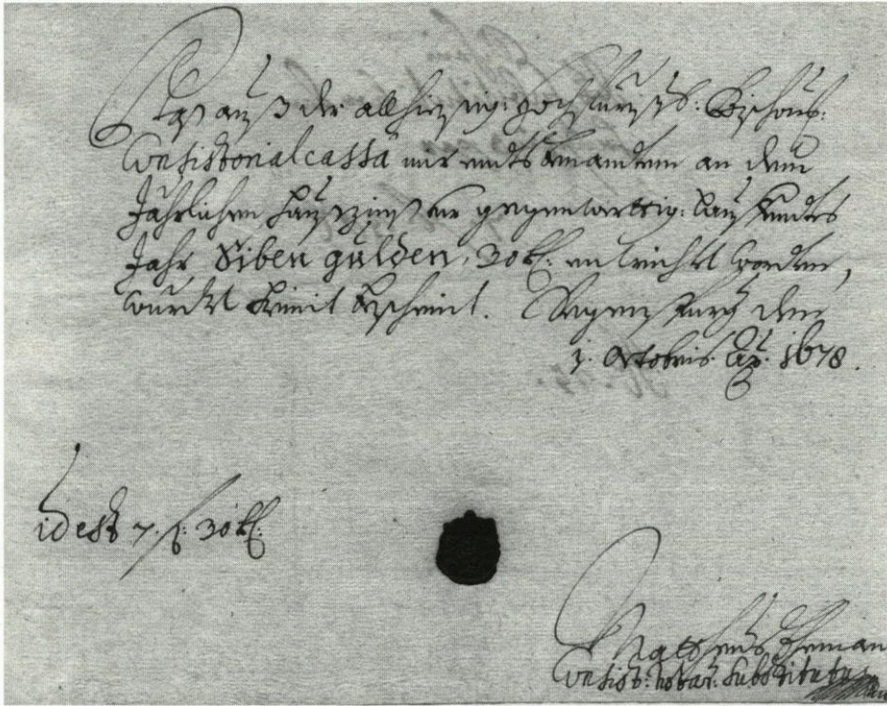 Daß auß der alhiesig: Hochfürstl: Bischöf:
Consistorialcassa mir endtsbenandten an dem
Jährlichen Haußzinß gegenwerttig: lauffendtes
Jahr Siben gulden, 30 kr: entricht worden,
würdt hiemit bescheint. Regenspurg den
1. Octobris Ao. 1678.
id est 7 f: 30 kr:
Mattheüs
Consist: Notar: Substitutus